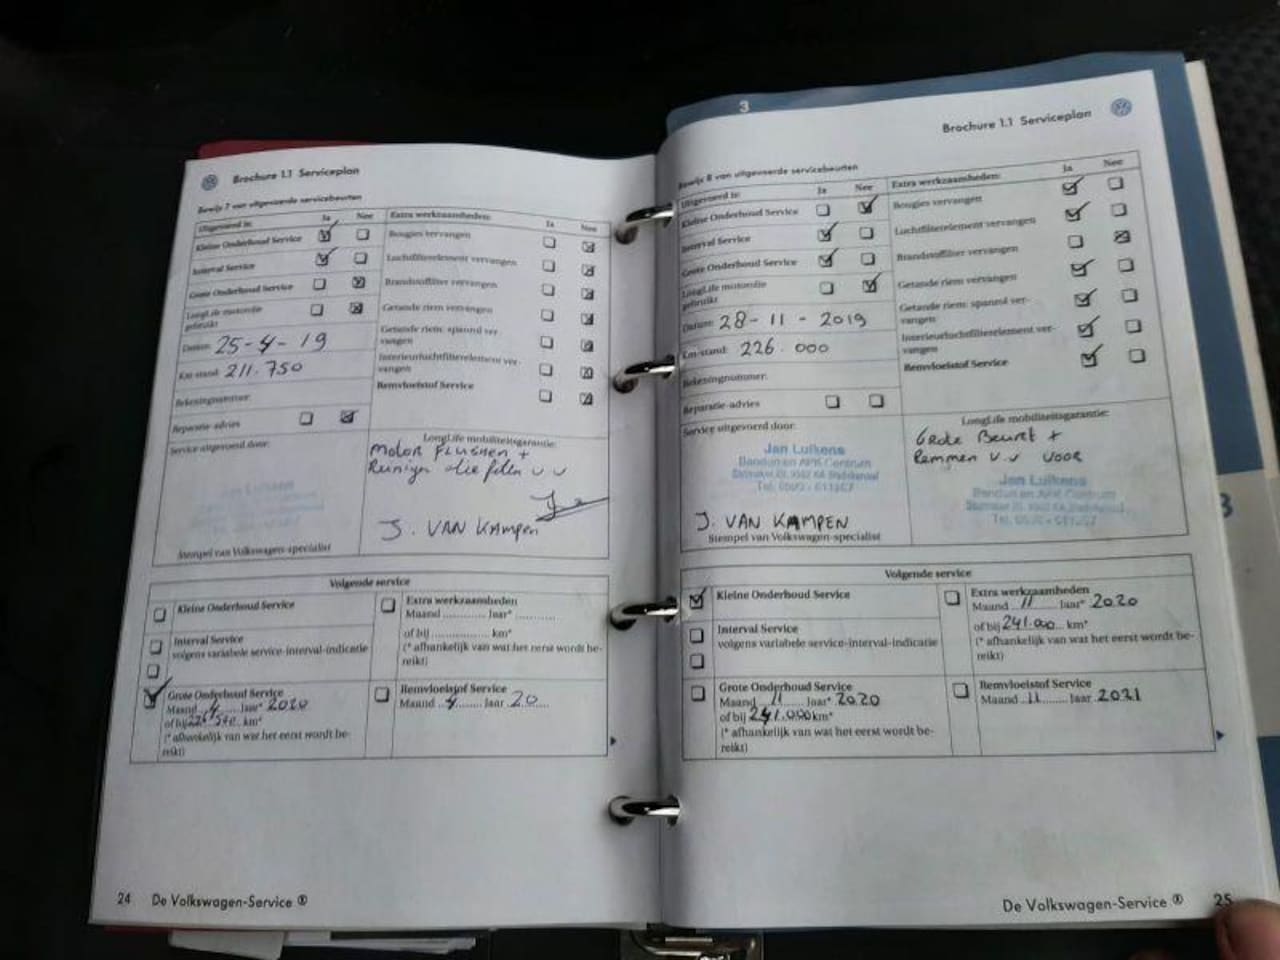 Brochure 1.1 Serviceplan
Bewijs 7 van uitgevoerde servicebeurten
Uitgevoerd is: Ja Nee
Kleine Onderhoud Service
Interval Service
Grote Onderhoud Service
LongLife motorolie
gebruikt
Datum: 25-4-19
Km-stand: 211.750
Rekeningnummer:
Reparatie-advies
Service uitgevoerd door:
Stempel van Volkswagen-specialist
Extra werkzaamheden: Ja Nee
Bougies vervangen
Luchtfilterelement vervangen
Brandstoffilter vervangen
Getande riem vervangen
Getande riem: spanrol ver-
vangen
Interieurluchtfilterelement ver-
vangen
Remvloeistof Service
LongLife mobiliteitsgarantie:
Motor Flushen +
olie
J. VAN KAMPEN
Volgende service
Kleine Onderhoud Service
Interval Service
volgens variabele service-interval-indicatie
Grote Onderhoud Service
Maand 4 Jaar* 2020
of bij km*
(* afhankelijk van wat het eerst wordt be-
reikt)
Extra werkzaamheden
Maand Jaar*
of bij km*
(* afhankelijk van wat het eerst wordt be-
reikt)
Remvloeistof Service
Maand 4 Jaar 20
24 De Volkswagen-Service ®
3
Brochure 1.1 Serviceplan
Bewijs 8 van uitgevoerde servicebeurten
Uitgevoerd is: Ja Nee
Kleine Onderhoud Service
Interval Service
Grote Onderhoud Service
LongLife motorolie
gebruikt
Datum: 28-11-2019
Km-stand: 226.000
Rekeningnummer:
Reparatie-advies
Service uitgevoerd door:
Jan Luikens
Banden en APK Centrum
J. VAN KAMPEN
Stempel van Volkswagen-specialist
Extra werkzaamheden: Ja Nee
Bougies vervangen
Luchtfilterelement vervangen
Brandstoffilter vervangen
Getande riem vervangen
Getande riem: spanrol ver-
vangen
Interieurluchtfilterelement ver-
vangen
Remvloeistof Service
LongLife mobiliteitsgarantie:
Grote Beurt +
Remmen v.v voor
Jan Luikens
Banden en APK Centrum
Volgende service
Kleine Onderhoud Service
Interval Service
volgens variabele service-interval-indicatie
Grote Onderhoud Service
Maand 11 Jaar* 2020
of bij 241.000 km*
(* afhankelijk van wat het eerst wordt be-
reikt)
Extra werkzaamheden
Maand 11 Jaar* 2020
of bij 241.000 km*
(* afhankelijk van wat het eerst wordt be-
reikt)
Remvloeistof Service
Maand 11 Jaar 2021
De Volkswagen-Service ® 25
3